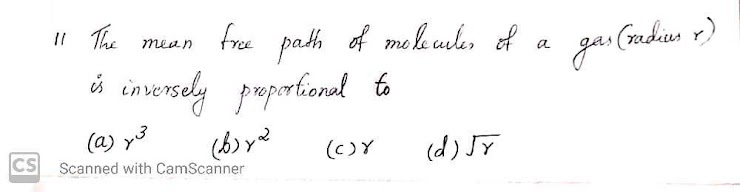 11 The mean free path of molecules of a gas (radius r)
is inversely proportional to
(a) r³ (b) r² (c) r (d) √r
CS Scanned with CamScanner